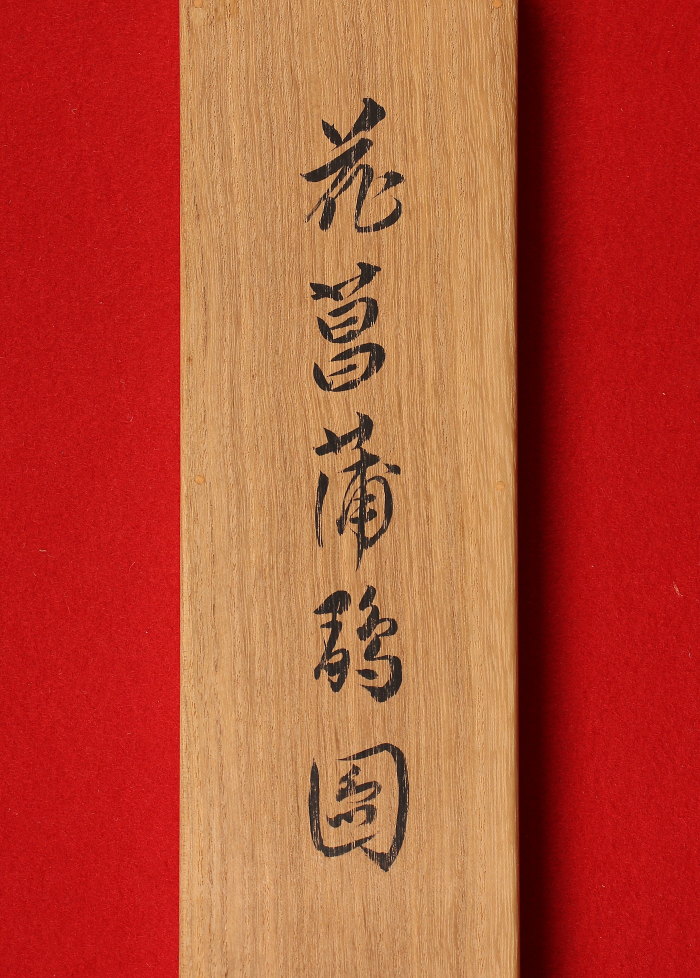 花菖蒲圖